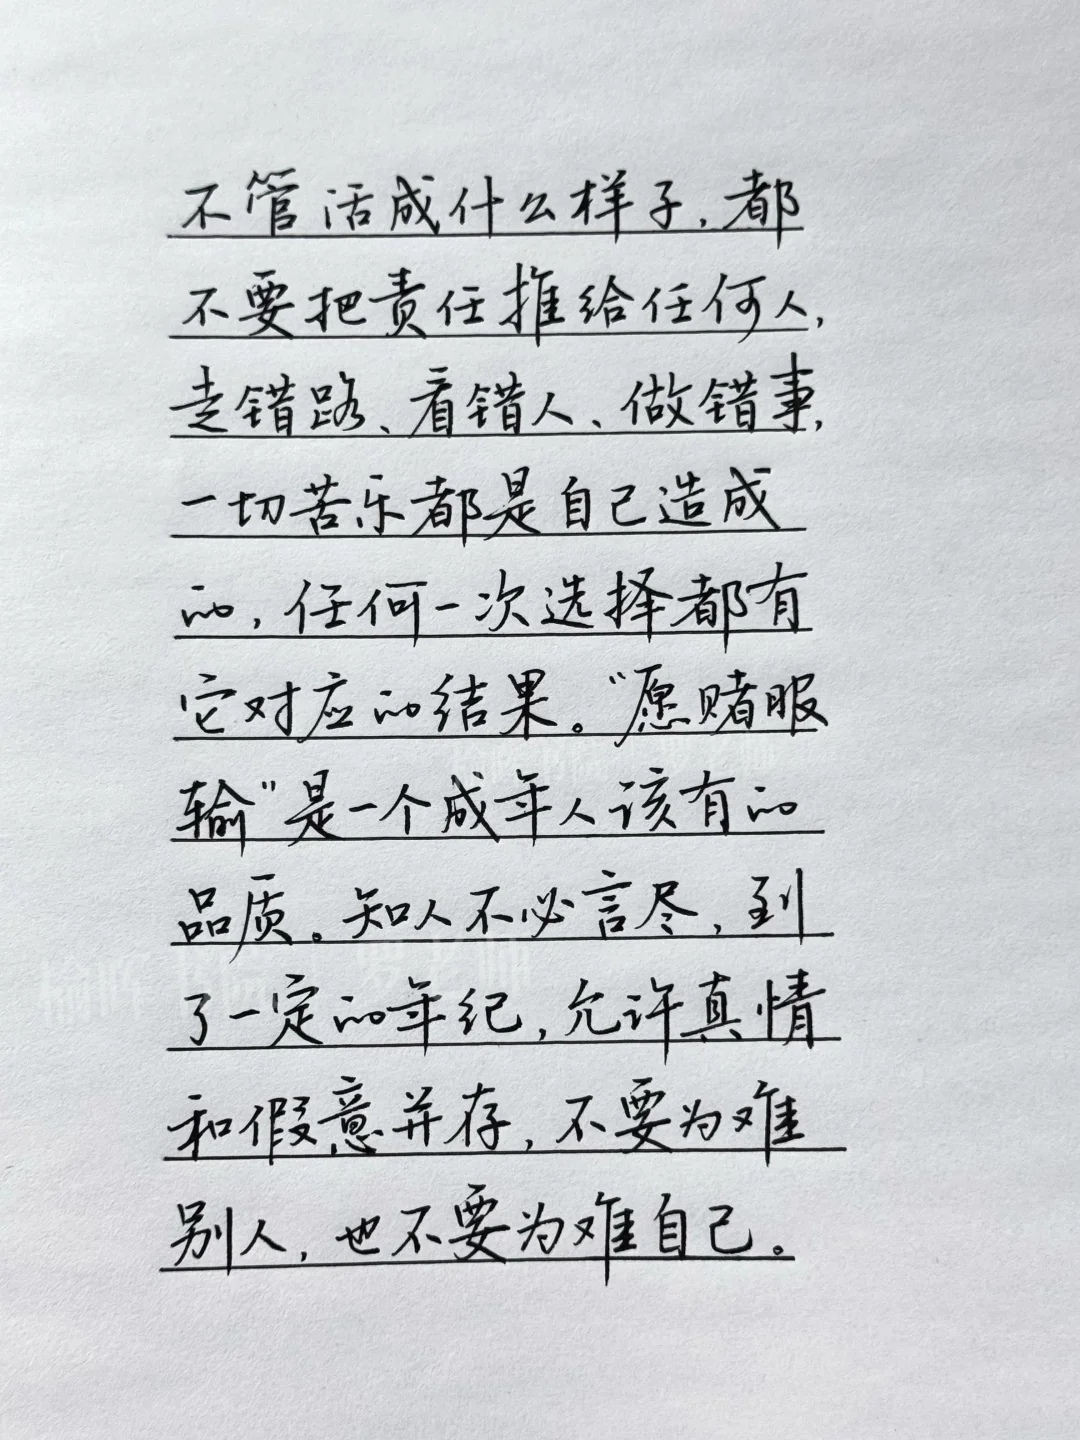 不管活成什么样子，都
不要把责任推给任何人，
走错路、看错人、做错事，
一切苦乐都是自己造成
的，任何一次选择都有
它对应的结果。“愿赌服
输”是一个成年人该有的
品质。知人不必言尽，到
了一定的年纪，允许真情
和假意并存，不要为难
别人，也不要为难自己。